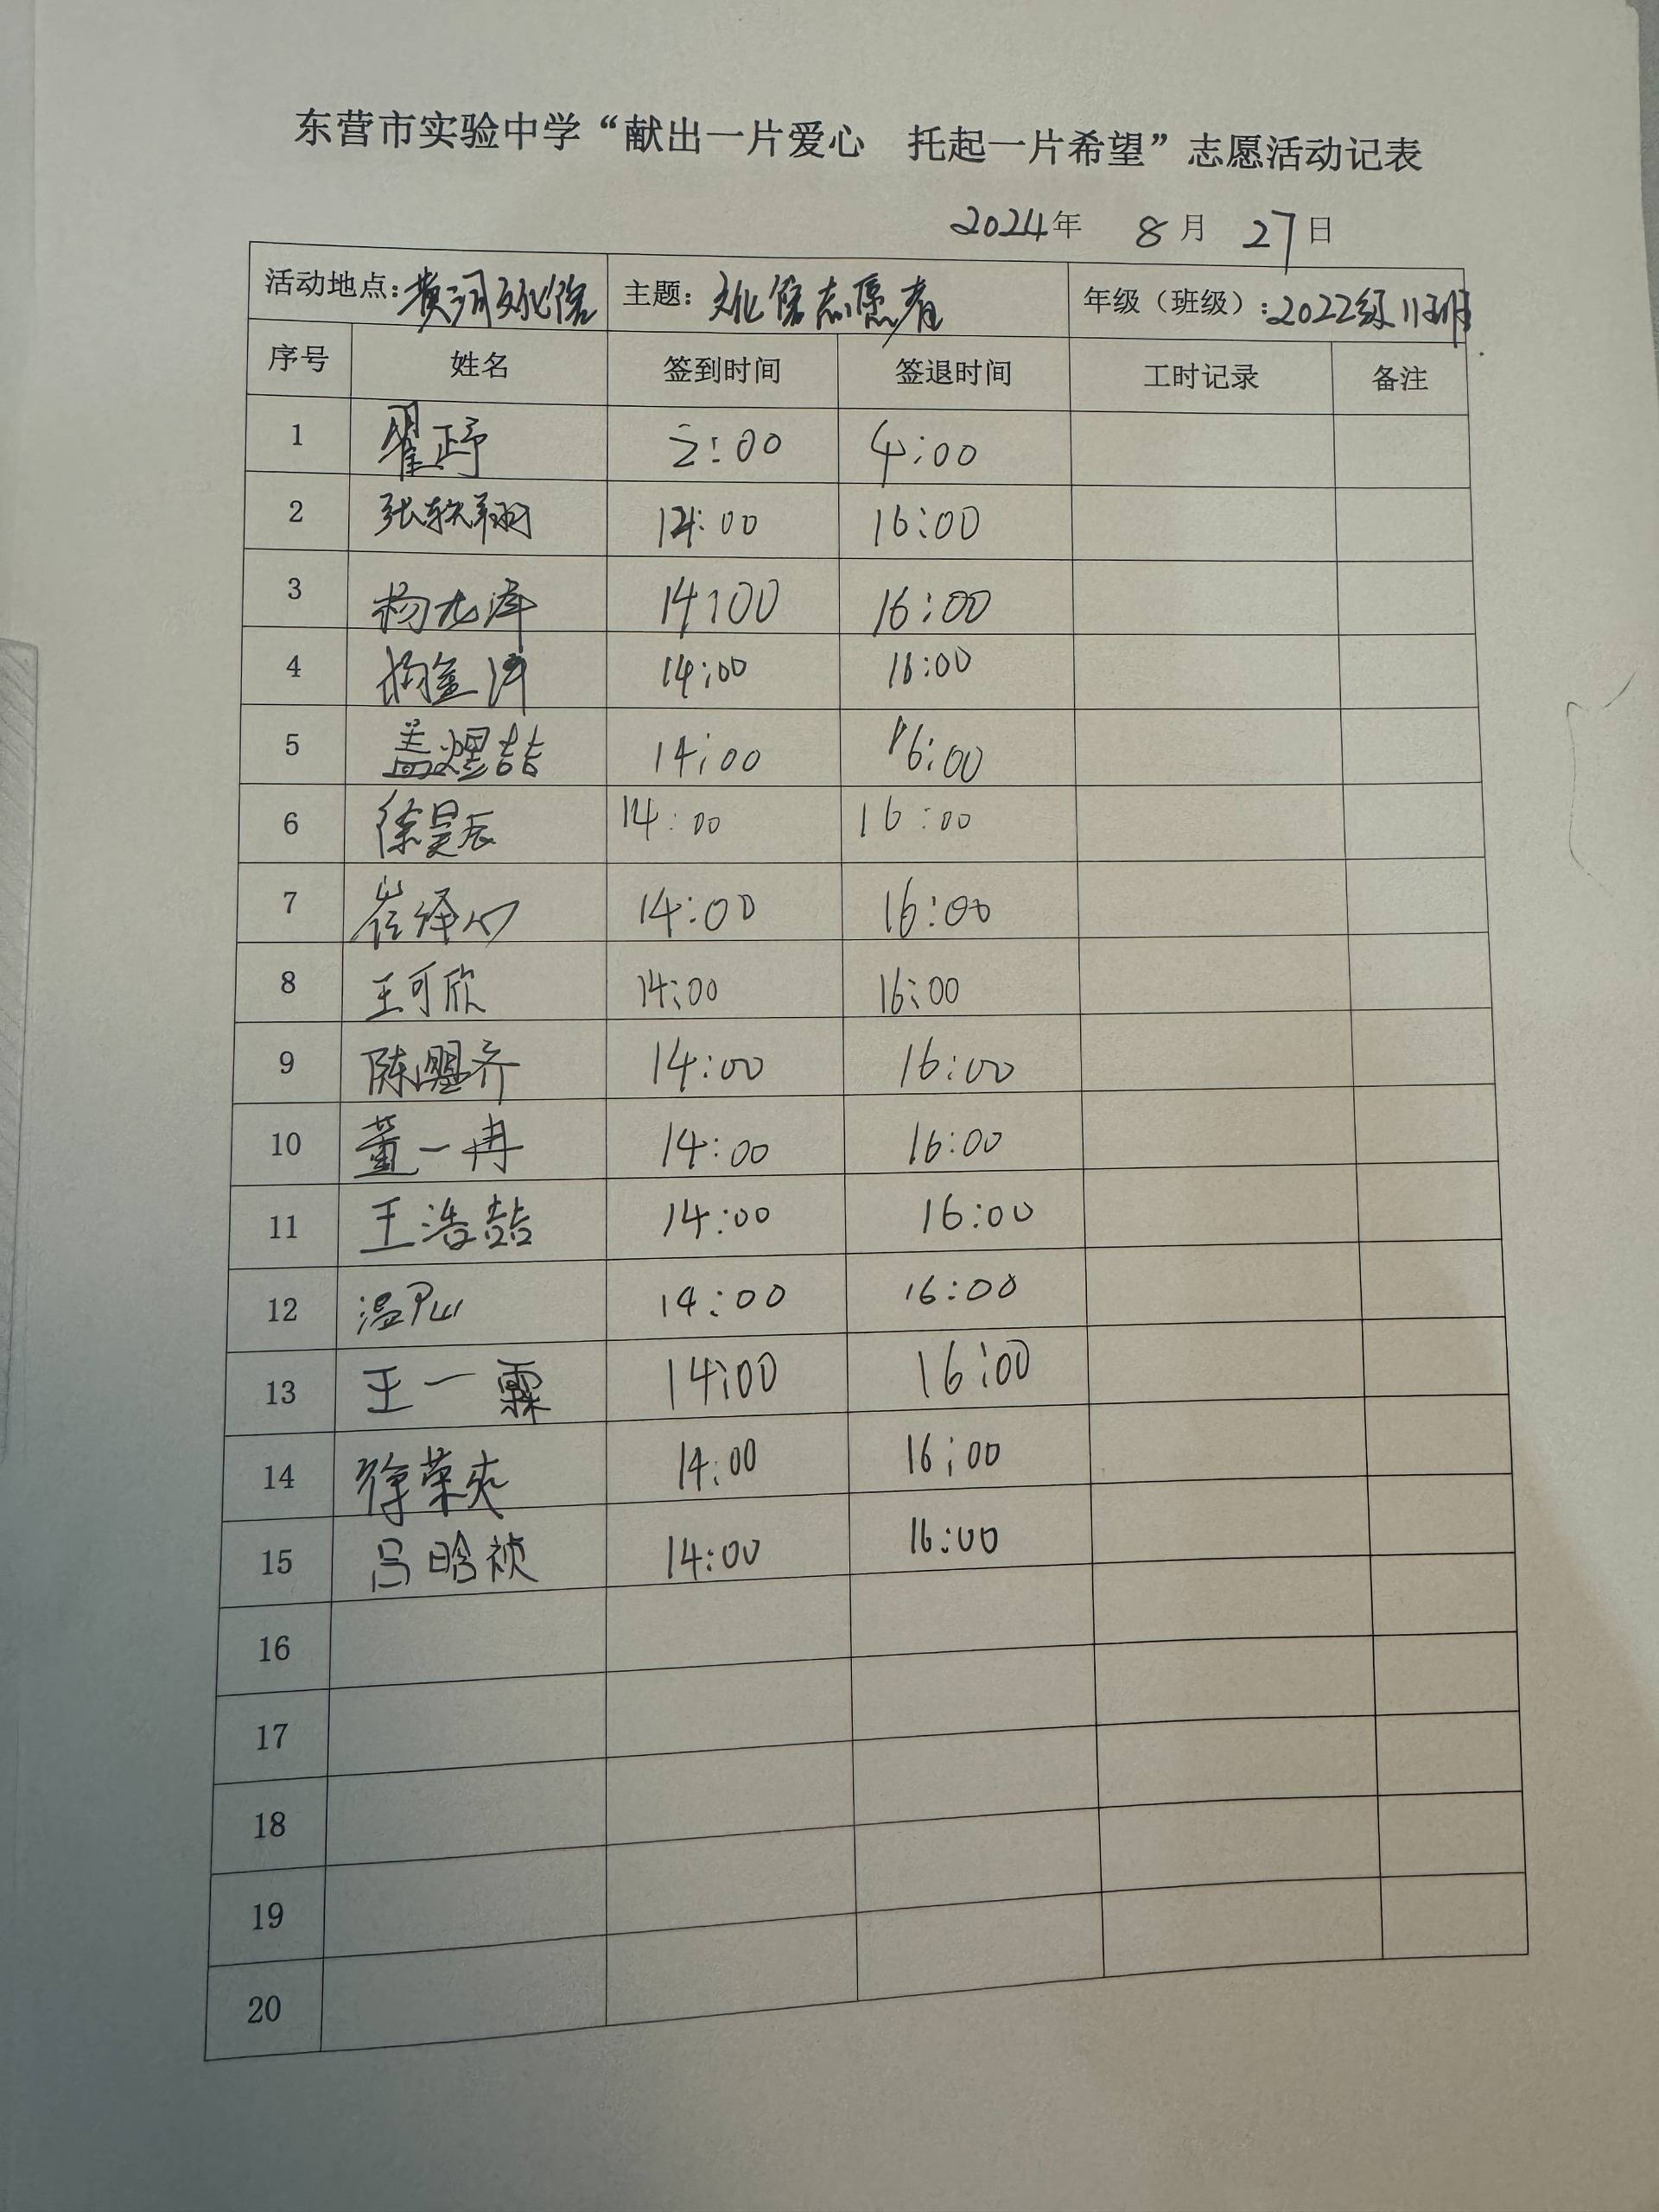 东营市实验中学“献出一片爱心 托起一片希望”志愿活动记表
2024年 8月 27日
活动地点:黄河文化馆 主题:文化馆志愿者 年级（班级）:2022级11班
序号 姓名 签到时间 签退时间 工时记录 备注
1 翟 2:00 4:00
2 张轶翔 14:00 16:00
3 杨 14:00 16:00
4 杨金 14:00 16:00
5 盖煜喆 14:00 16:00
6 徐昊辰 14:00 16:00
7 崔泽 14:00 16:00
8 王可欣 14:00 16:00
9 陈曌齐 14:00 16:00
10 董一冉 14:00 16:00
11 王浩喆 14:00 16:00
12 温 14:00 16:00
13 王一霖 14:00 16:00
14 徐荣爽 14:00 16:00
15 吕晗祯 14:00 16:00
16
17
18
19
20